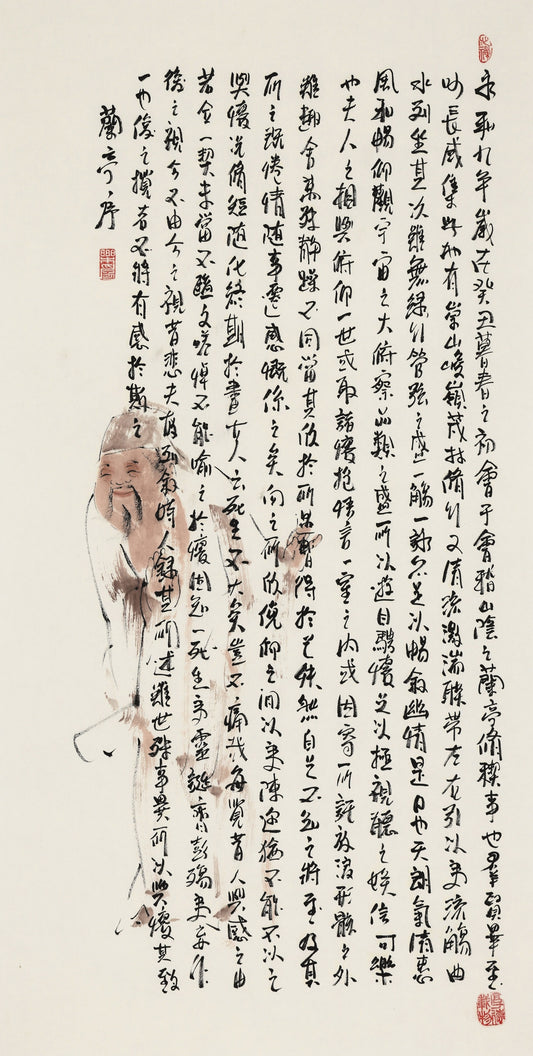 永和九年歲在癸丑暮春之初會于會稽山陰之蘭亭脩稧事也羣賢畢至
少長咸集此地有崇山峻嶺茂林脩竹又清流激湍暎帶左右引以為流觴曲
水列坐其次雖無絲竹管弦之盛一觴一詠亦足以暢敘幽情是日也天朗氣清惠
風和暢仰觀宇宙之大俯察品類之盛所以遊目騁懷足以極視聽之娛信可樂
也夫人之相與俯仰一世或取諸懷抱悟言一室之內或因寄所託放浪形骸之外
雖趣舍萬殊靜躁不同當其欣於所遇暫得於己快然自足不知之將至及其
所之既倦情隨事遷感慨係之矣向之所欣俛仰之間以為陳迹猶不能不以之
興懷況脩短隨化終期於盡古人云死生亦大矣豈不痛哉每覽昔人興感之由
若合一契未嘗不臨文嗟悼不能喻之於懷固知一死生為虛誕齊彭殤為妄作
後之視今亦由今之視昔悲夫故列敘時人錄其所述雖世殊事異所以興懷其致
一也後之攬者亦將有感於斯文
蘭亭序